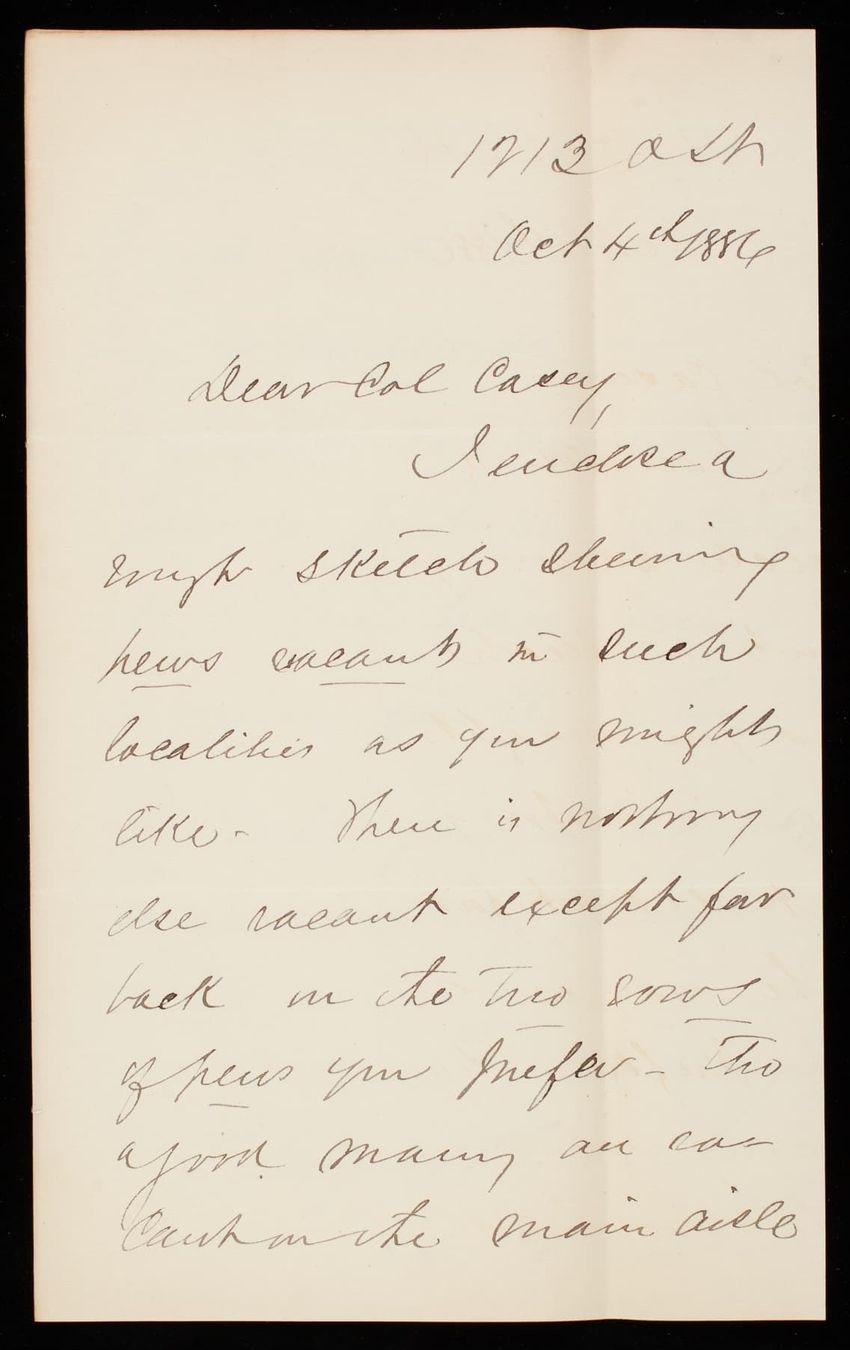 1713 Q St
Oct 4th 1886
Dear Col Casey,
I enclose a
rough sketch shewing
pews vacant in such
localities as you might
like - There is nothing
else vacant except far
back in the two rows
of pews you prefer - Tho
a good many are va-
cant on the main aisle